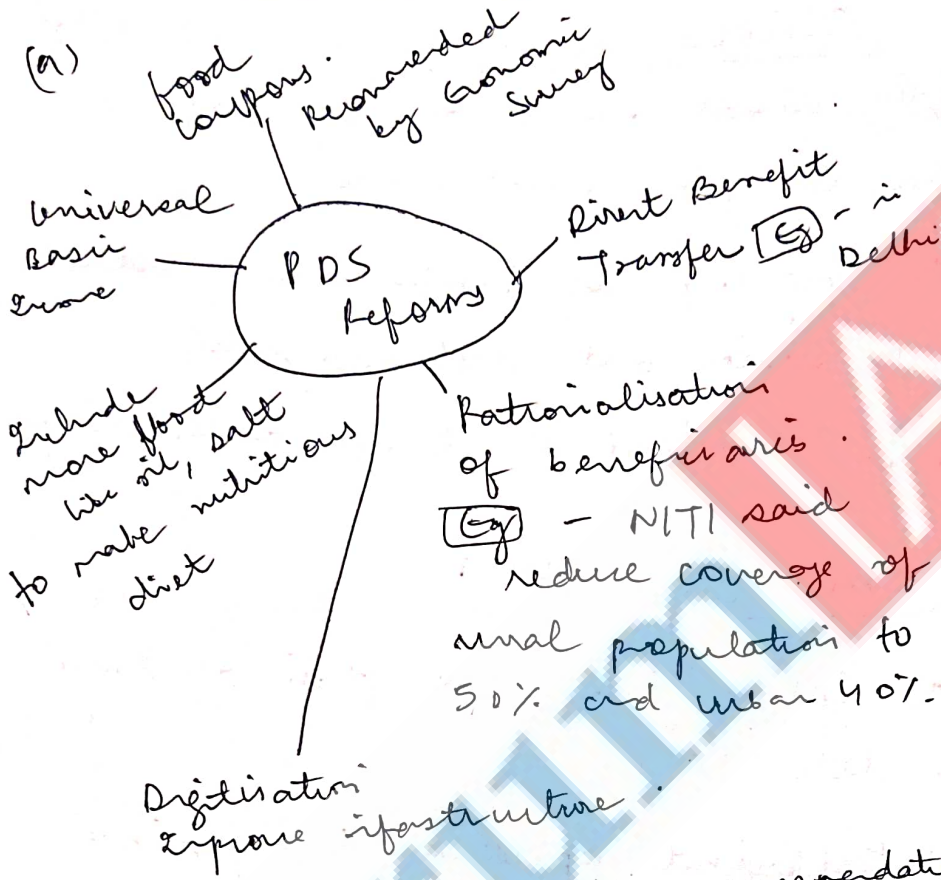 (a)
food
coupons.
Recommended
by Economic
Survey
Universal
Basic
Income
PDS
Reforms
Direct Benefit
Transfer Eg - in
Delhi
Include
more food
like oil, salt
to make nutritious
diet
Rationalisation
of beneficiaries.
Eg - NITI said
reduce coverage of
rural population to
50% and urban 40%.
Digitisation
Improve ifastructure.